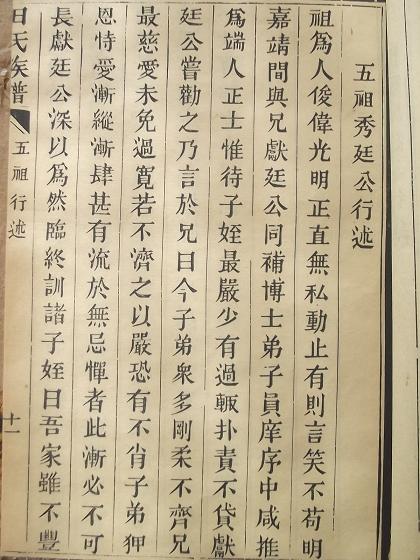 五祖秀廷公行述
祖為人俊偉光明正直無私動止有則言笑不苟明
嘉靖間與兄獻廷公同補博士弟子員庠序中咸推
為端人正士惟待子姪最嚴少有過輒扑責不貸獻
廷公嘗勸之乃言於兄曰今子弟眾多剛柔不齊兄
最慈愛未免過寬若不濟之以嚴恐有不肖子弟狎
恩恃愛漸縱漸肆甚有流於無忌憚者此漸必不可
長獻廷公深以為然臨終訓諸子姪曰吾家雖不豐
田氏族譜 五祖行述 十一